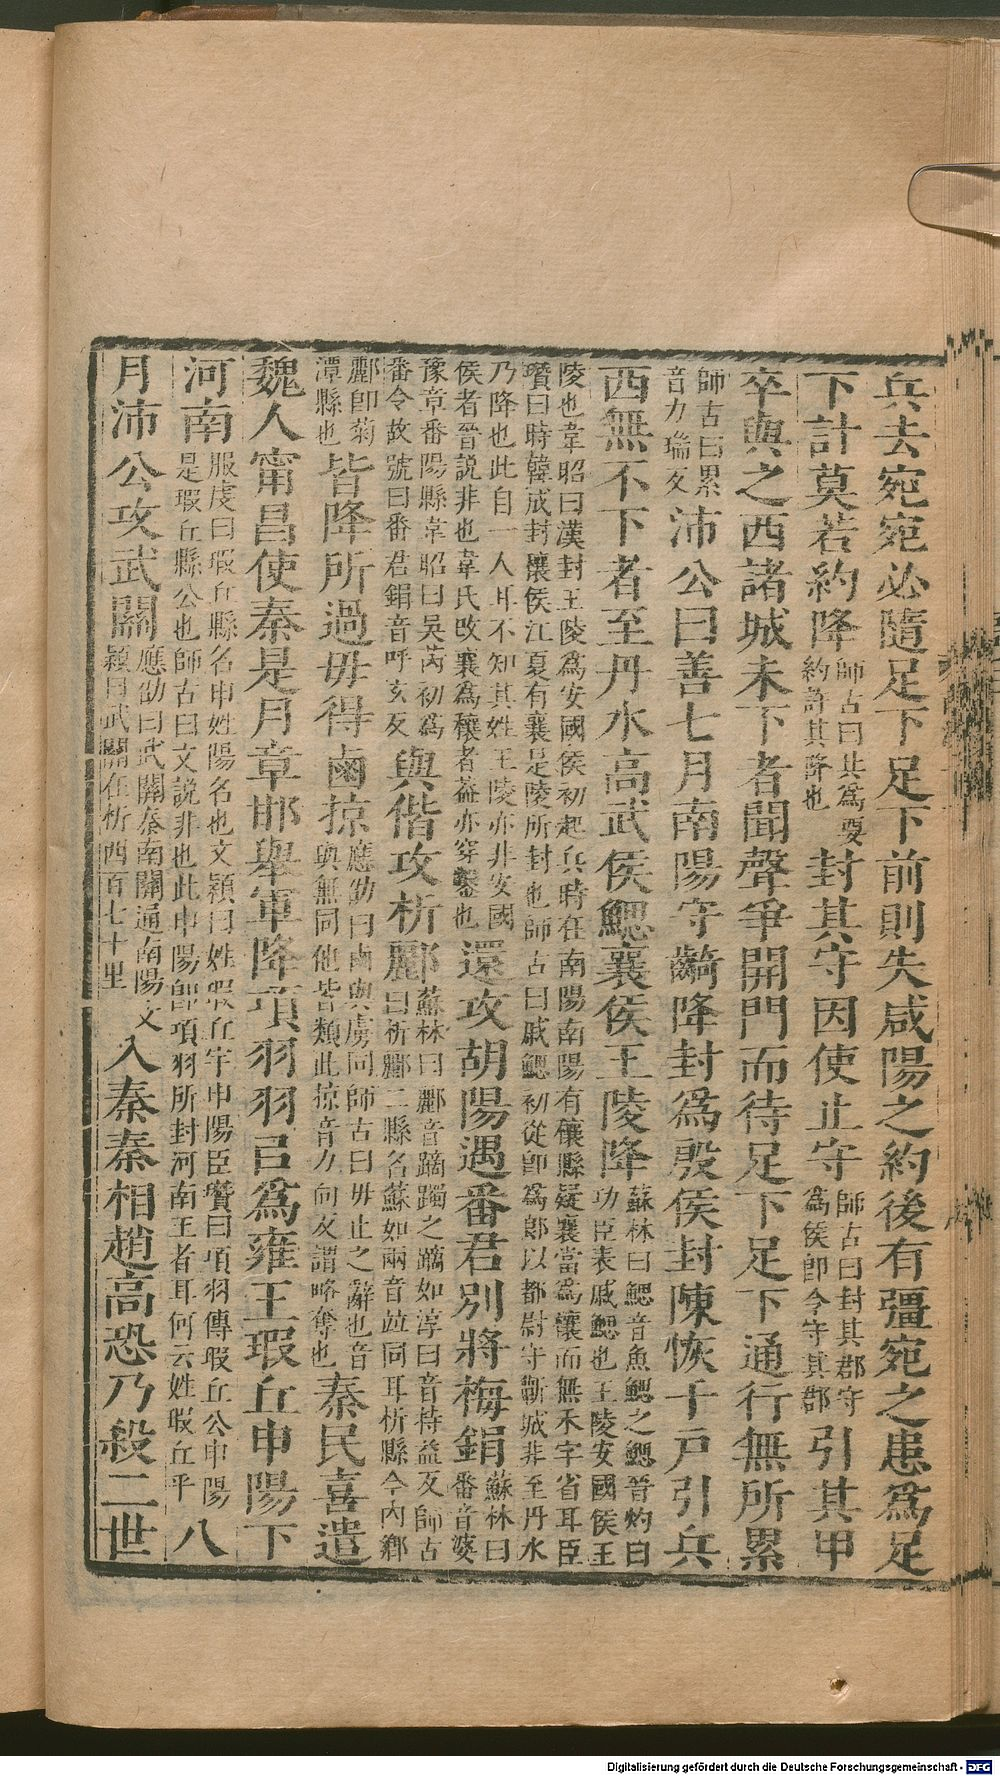 兵去宛宛必隨足下足下前則失咸陽之約後有彊宛之患爲足
下計莫若約降師古曰共爲要約許其降也封其守因使止守師古曰封其郡守爲侯卽令守其郡引其甲
卒與之西諸城未下者聞聲爭開門而待足下足下通行無所累
師古曰累音力瑞反沛公曰善七月南陽守齮降封爲殷侯封陳恢千戶引兵
西無不下者至丹水高武侯鰓襄侯王陵降蘇林曰鰓音魚鰓之鰓晉灼曰功臣表戚鰓也王陵安國侯王
陵也韋昭曰漢封王陵爲安國侯初起兵時在南陽南陽有穰縣疑襄當爲穰而無禾字省耳臣
瓚曰時韓成封穰侯江夏有襄是陵所封也師古曰戚鰓初從卽爲郎以都尉守蘄城非至丹水
乃降也此自一人耳不知其姓王陵亦非安國
侯者晉說非也韋氏改襄爲穰者葢亦穿鑿也還攻胡陽遇番君別將梅鋗蘇林曰番音婆
豫章番陽縣韋昭曰吳芮初爲
番令故號曰番君鋗音呼玄反與偕攻析酈蘇林曰酈音蹢躅之蹢如淳曰音持益反師古曰析酈二縣名蘇如兩音竝同耳析縣今內鄉
酈卽菊潭縣也皆降所過毋得鹵掠應劭曰鹵與虜同師古曰毋止之辭也音與無同他皆類此掠音力向反謂略奪也秦民喜遣
魏人甯昌使秦是月章邯舉軍降項羽羽吕爲雍王瑕丘申陽下
河南服虔曰瑕丘縣名申姓陽名也文穎曰姓瑕丘字申陽臣瓚曰項羽傳瑕丘公申陽是瑕丘縣公也師古曰文說非也此申陽卽項羽所封河南王者耳何云姓瑕丘乎八
月沛公攻武關應劭曰武關秦南關通南陽文穎曰武關在析西百七十里入秦秦相趙高恐乃殺二世
Digitalisierung gefördert durch die Deutsche Forschungsgemeinschaft - DFG